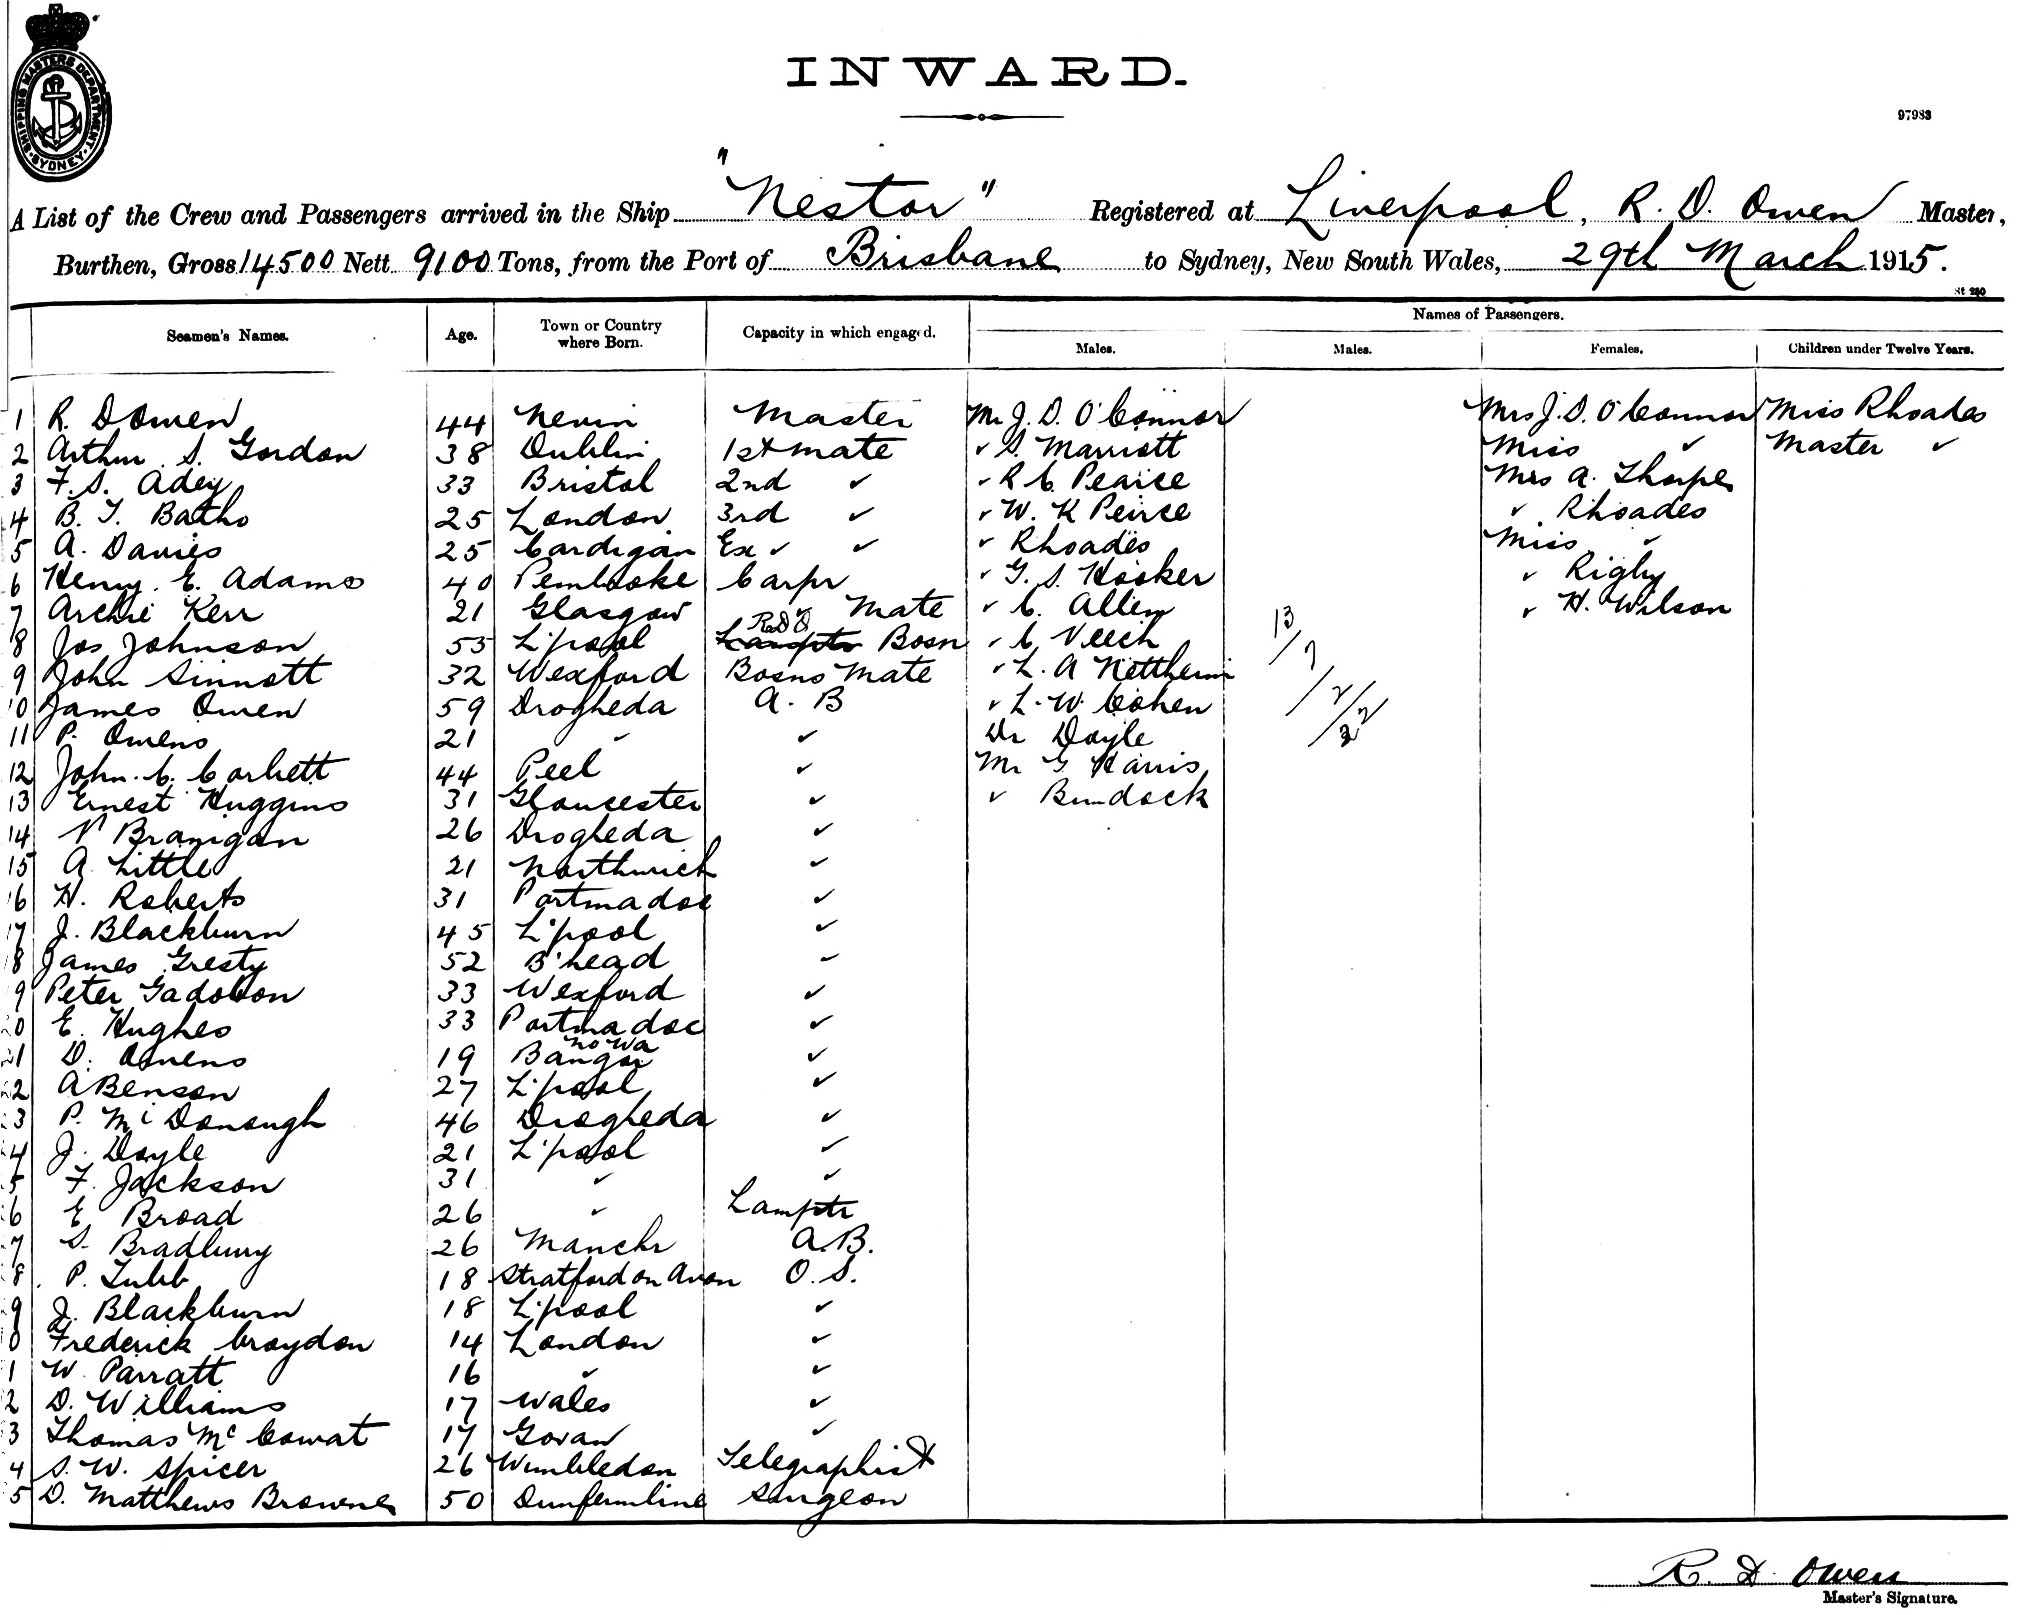 SHIPPING MASTERS DEPARTMENT SYDNEY
INWARD.
97983
A List of the Crew and Passengers arrived in the Ship "Nestor" Registered at Liverpool, R. D. Owen Master,
Burthen, Gross 14500 Nett 9100 Tons, from the Port of Brisbane to Sydney, New South Wales, 29th March 1915.
St 250
Names of Passengers.
Seamen's Names. Age. Town or Country where Born. Capacity in which engaged. Males. Males. Females. Children under Twelve Years.
1 R. D Owen 44 Nevin Master Mr J. D. O'Connor Mrs J. D. O'Connor Miss Rhoades
2 Arthur S. Gordon 38 Dublin 1st mate " S. Marriott Miss " Master "
3 F. S. Adey 33 Bristol 2nd " " R C Pearce Mrs A. Thorpe
4 B. T. Batho 25 London 3rd " " W. K Peirce " Rhoades
5 A. Davies 25 Cardigan Ex " " " Rhoades Miss "
6 Henry E. Adams 40 Pembroke Carpr " G. S. Hooker " Rigby
7 Archie Kerr 21 Glasgow " Mate " C. Allen " H. Wilson
8 Jos Johnson 53 L'pool Lamptr Bosn " C Veech 13
9 John Sinnott 32 Wexford Bosns Mate " L. A Nettheim 7
10 James Owen 59 Drogheda A. B " L. W. Cohen 2
11 P. Owens 21 " " Dr Doyle 22
12 John C. Corbett 44 Peel " Mr G Harris
13 Ernest Huggins 31 Gloucester " " Bundock
14 P Branigan 26 Drogheda "
15 A Little 21 Northwich "
16 H. Roberts 31 Portmadoc "
17 J. Blackburn 45 L'pool "
8 James Gresty 52 B'head "
9 Peter Gadobon 33 Wexford "
20 E. Hughes 33 Portmadoc "
21 D. Owens 19 Bangor No Wa "
22 A Benson 27 L'pool "
3 P. McDonough 46 Drogheda "
4 J. Doyle 21 L'pool "
5 F. Jackson 31 " "
6 E Broad 26 " Lamptr
7 S. Bradbury 26 Manchr A.B.
8 P. Tubb 18 Stratford on Avon O. S.
9 J. Blackburn 18 L'pool "
0 Frederick Croydon 14 London "
1 W. Parratt 16 " "
2 D. Williams 17 Wales "
3 Thomas McCowat 17 Govan "
4 S. W. Spicer 26 Wimbledon Telegraphist
5 D. Matthews Browne 50 Dunfermline Surgeon
R. D. Owen
Master's Signature.